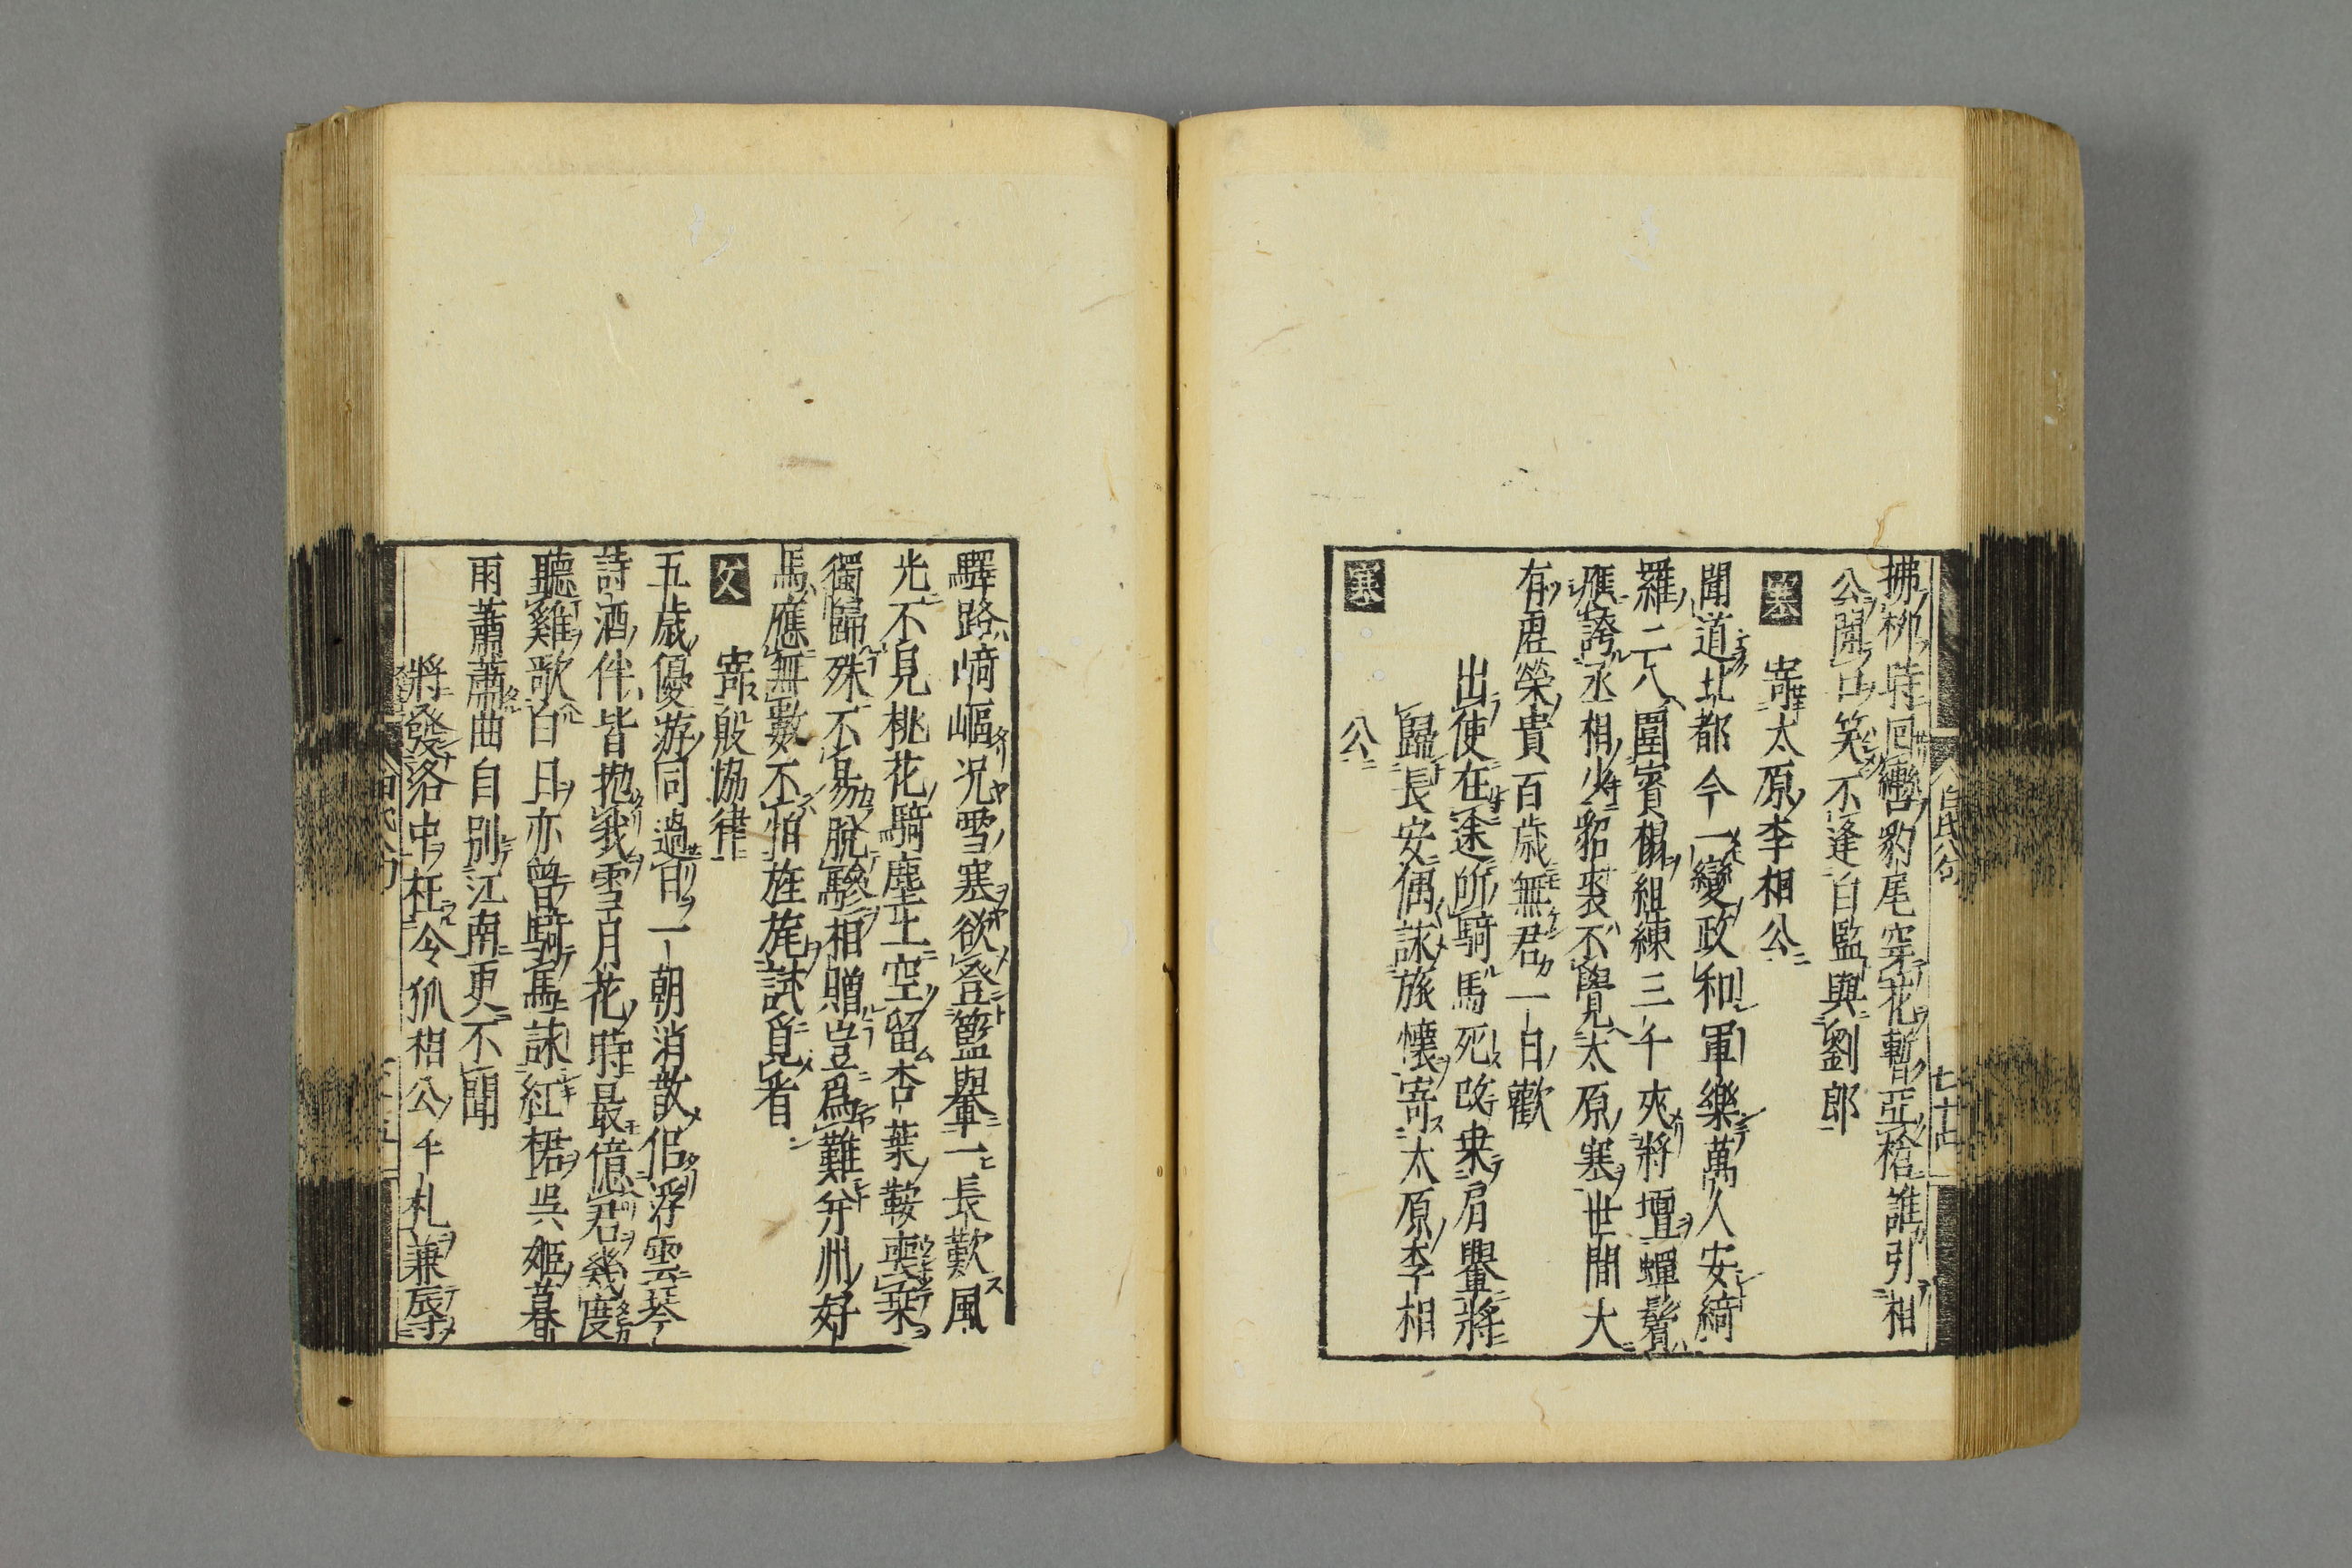 拂柳時回轡豹尾穿花暫亞槍誰引相
公開口笑不逢白監與劉郎
寒
寄太原李相公
聞道北都今一變政和軍樂萬人安綺
羅二八圍賓榻組練三千夾將壇蟬鬢
應誇丞相少貂裘不覺太原寒世間大
有虛榮貴百歲無君一日歡
出使在途所騎馬死改乘肩轝將
歸長安偶詠旅懷寄太原李相
寒
公
驛路崎嶇况雪寒欲登籃轝一長歎風
光不見桃花騎塵土空留杏葉鞍喪乘
獨歸殊不易脫驂相贈豈爲難并州好
馬應無數不怕旌旄試覓看
文
寄殷協律
五歲優游同過日一朝消散似浮雲琴
詩酒伴皆抛我雪月花時最憶君幾度
聽雞歌白日亦曾騎馬詠紅裙吳姬暮
雨蕭蕭曲自別江南更不聞
將發洛中枉令狐相公手札兼辱
白氏八句
七十四